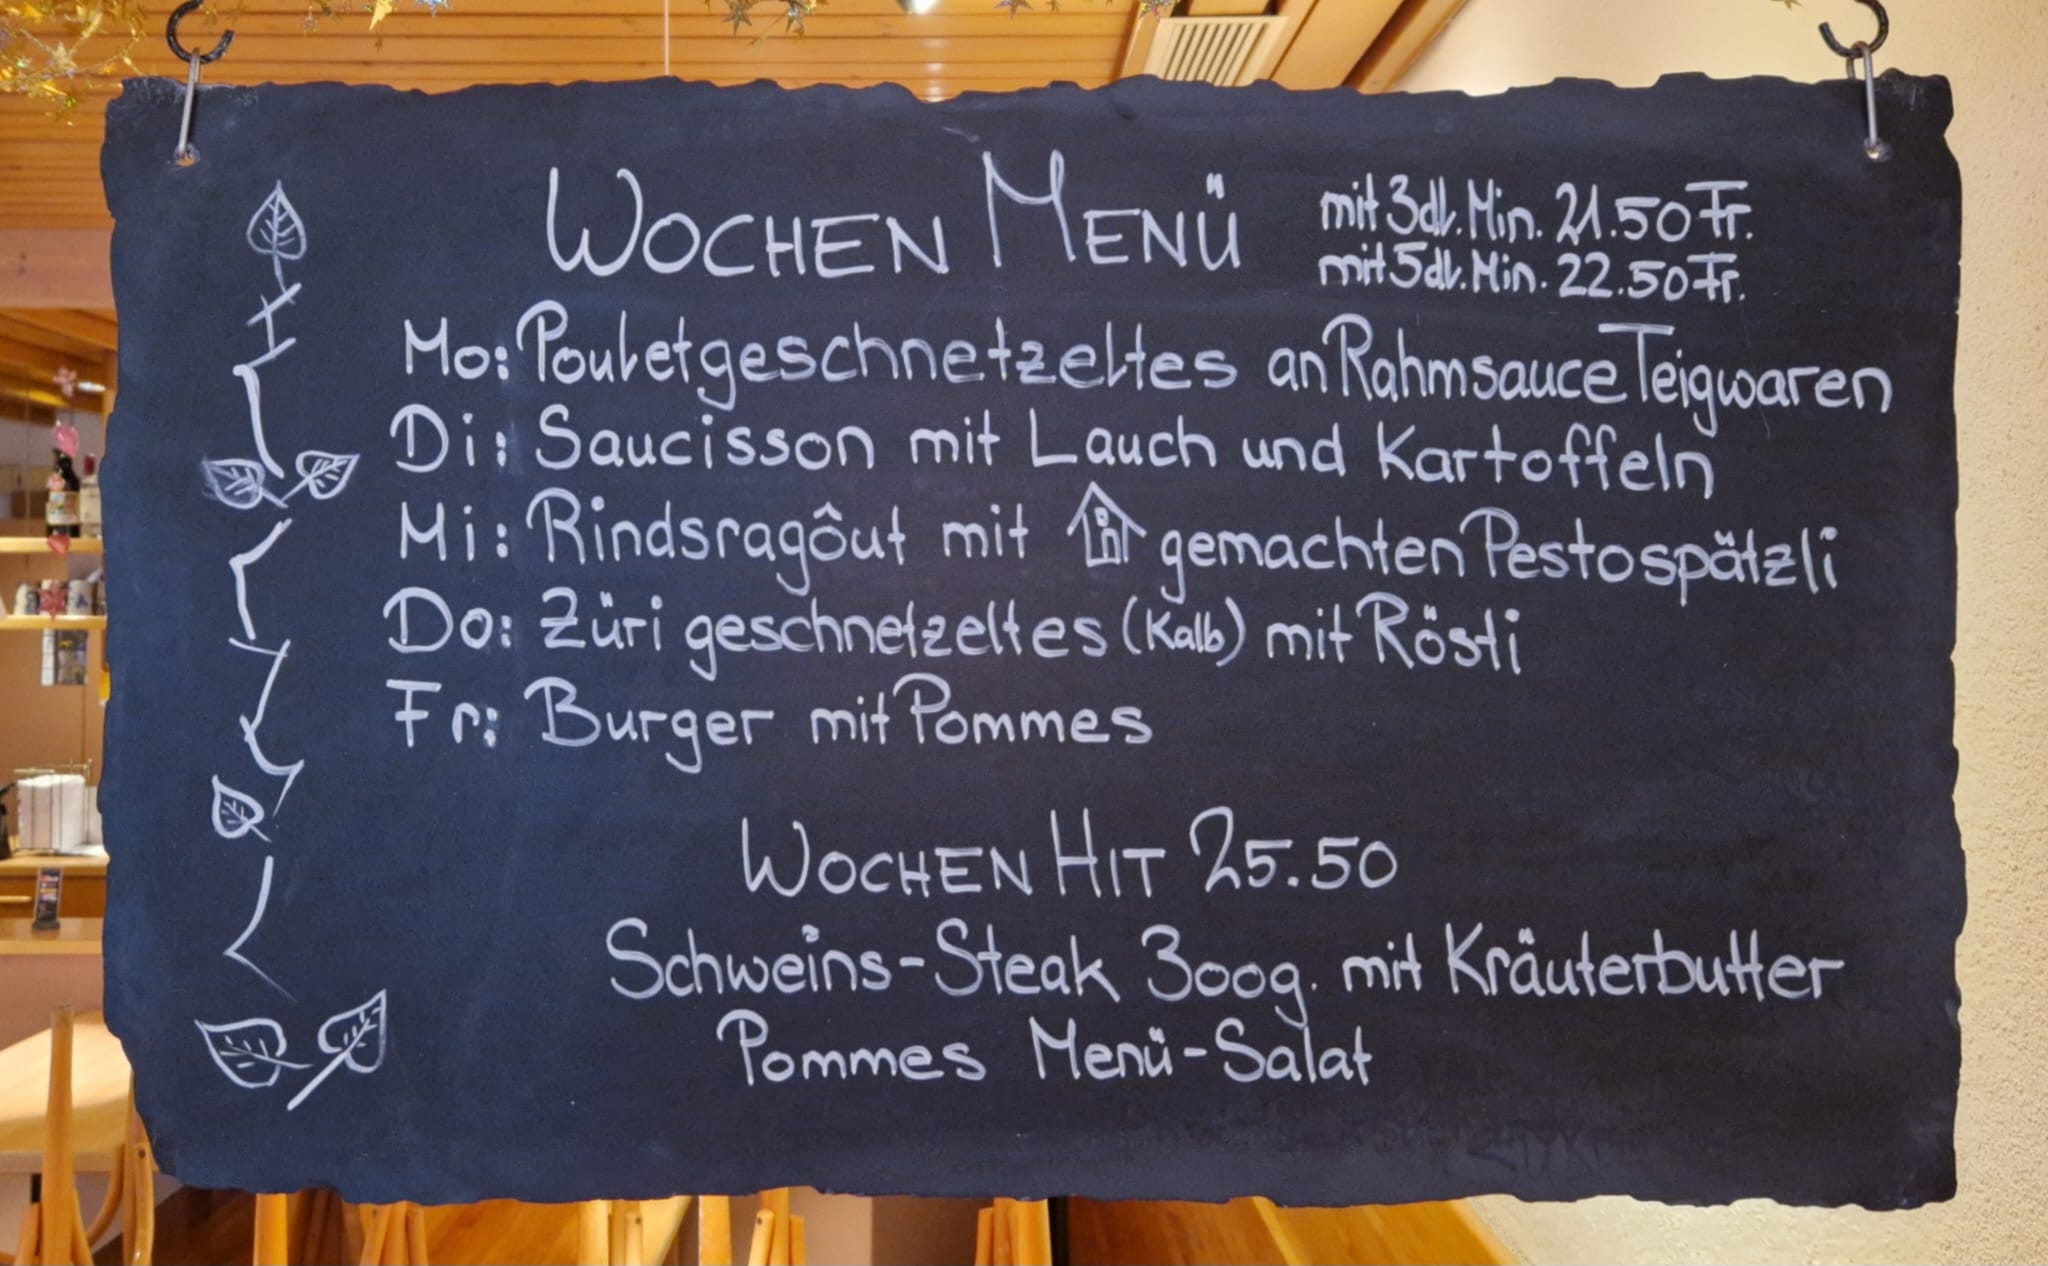 WOCHEN MENÜ
mit 3dl. Min. 21.50 Fr.
mit 5dl. Min. 22.50 Fr.
Mo: Pouletgeschnetzeltes an Rahmsauce Teigwaren
Di: Saucisson mit Lauch und Kartoffeln
Mi: Rindsragôut mit gemachten Pestospätzli
Do: Züri geschnetzeltes (Kalb) mit Rösti
Fr: Burger mit Pommes
WOCHEN HIT 25.50
Schweins-Steak 300g. mit Kräuterbutter
Pommes Menü-Salat